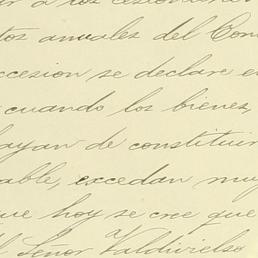 r a los cesionari
tos anuales del Con
ccesion se declare e
cuando los bienes,
hayan de constituir
able, excedan mu
ue hoy se cree que
l Señor Valdivielso